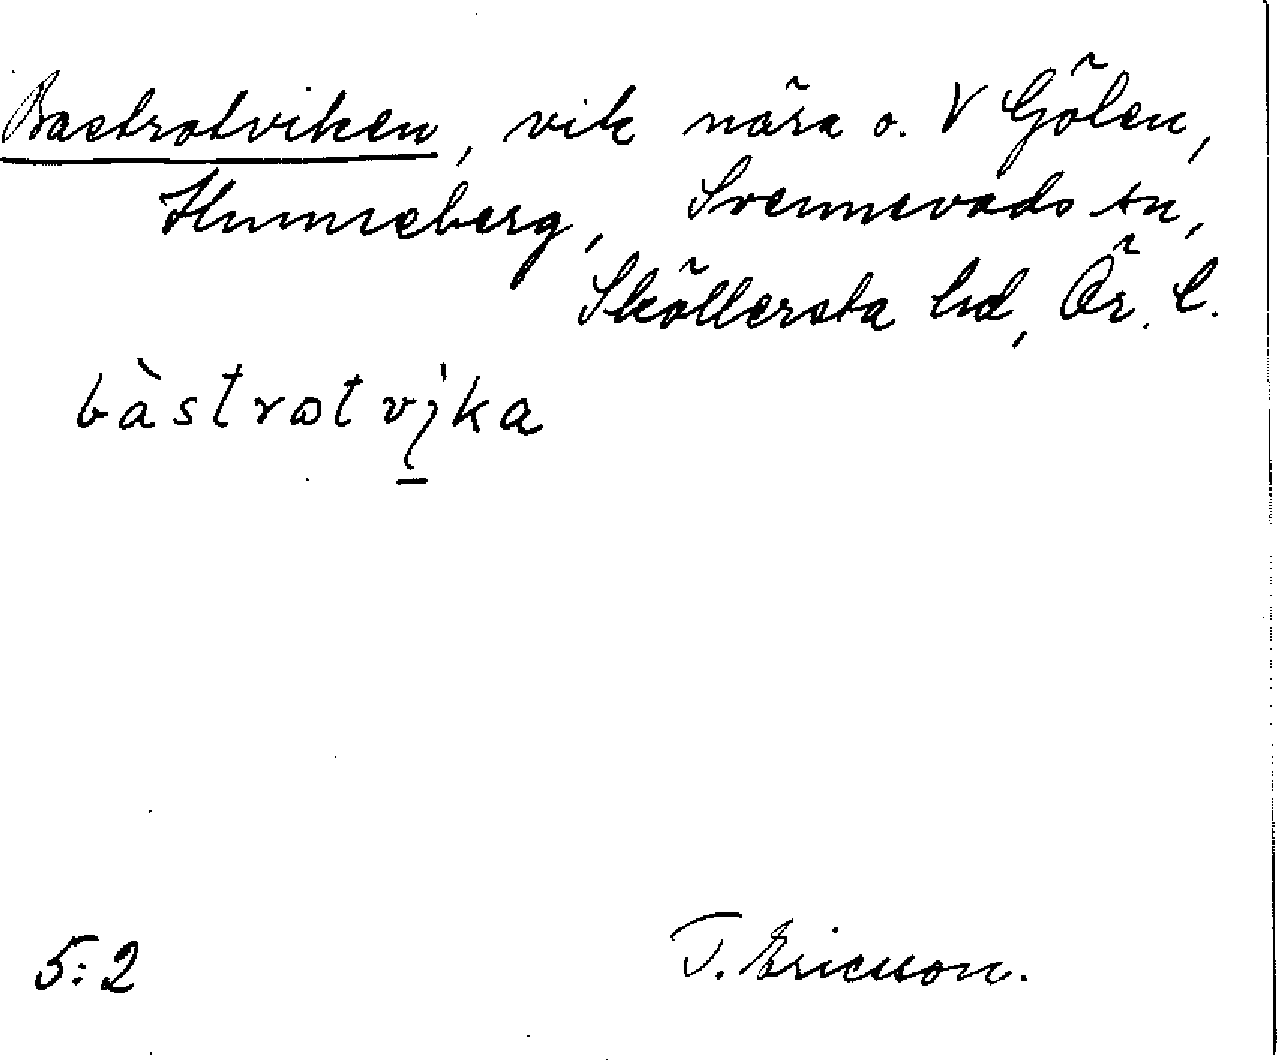 Bastrotviken, vik nära o. V Gölen,
Hunneberg, Svennevads sn,
Sköllersta hd, Ör. l.
bàstrotvika
5:2 T. Ericsson.